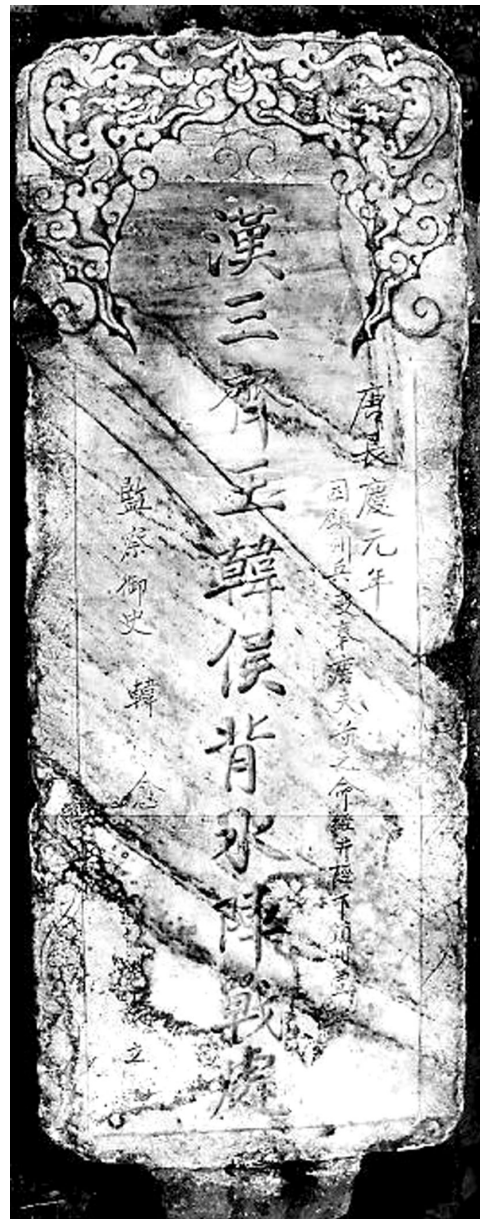 唐長慶元年
因鎮州兵變奉之命經井陘下
漢三齊王韓侯背水陣戰處
監察御史 韓 念 立